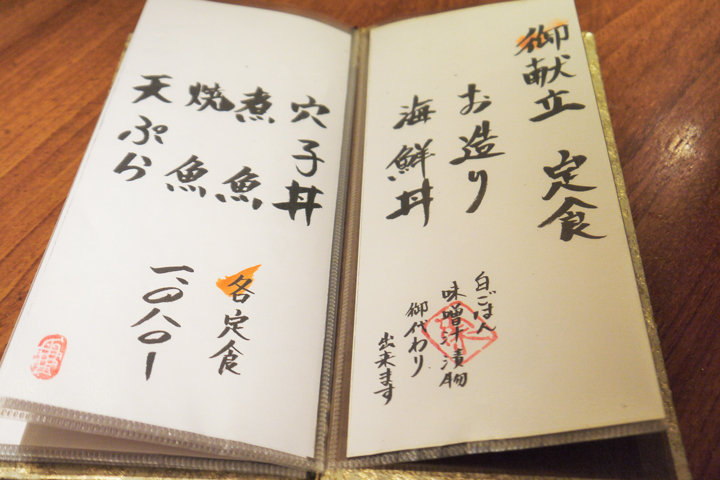 御献立 定食
お造り
海鮮丼
白ごはん
味噌汁漬物
御代わり
出来ます
穴子丼
煮魚
焼魚
天ぷら
各定食
一、〇八〇ー